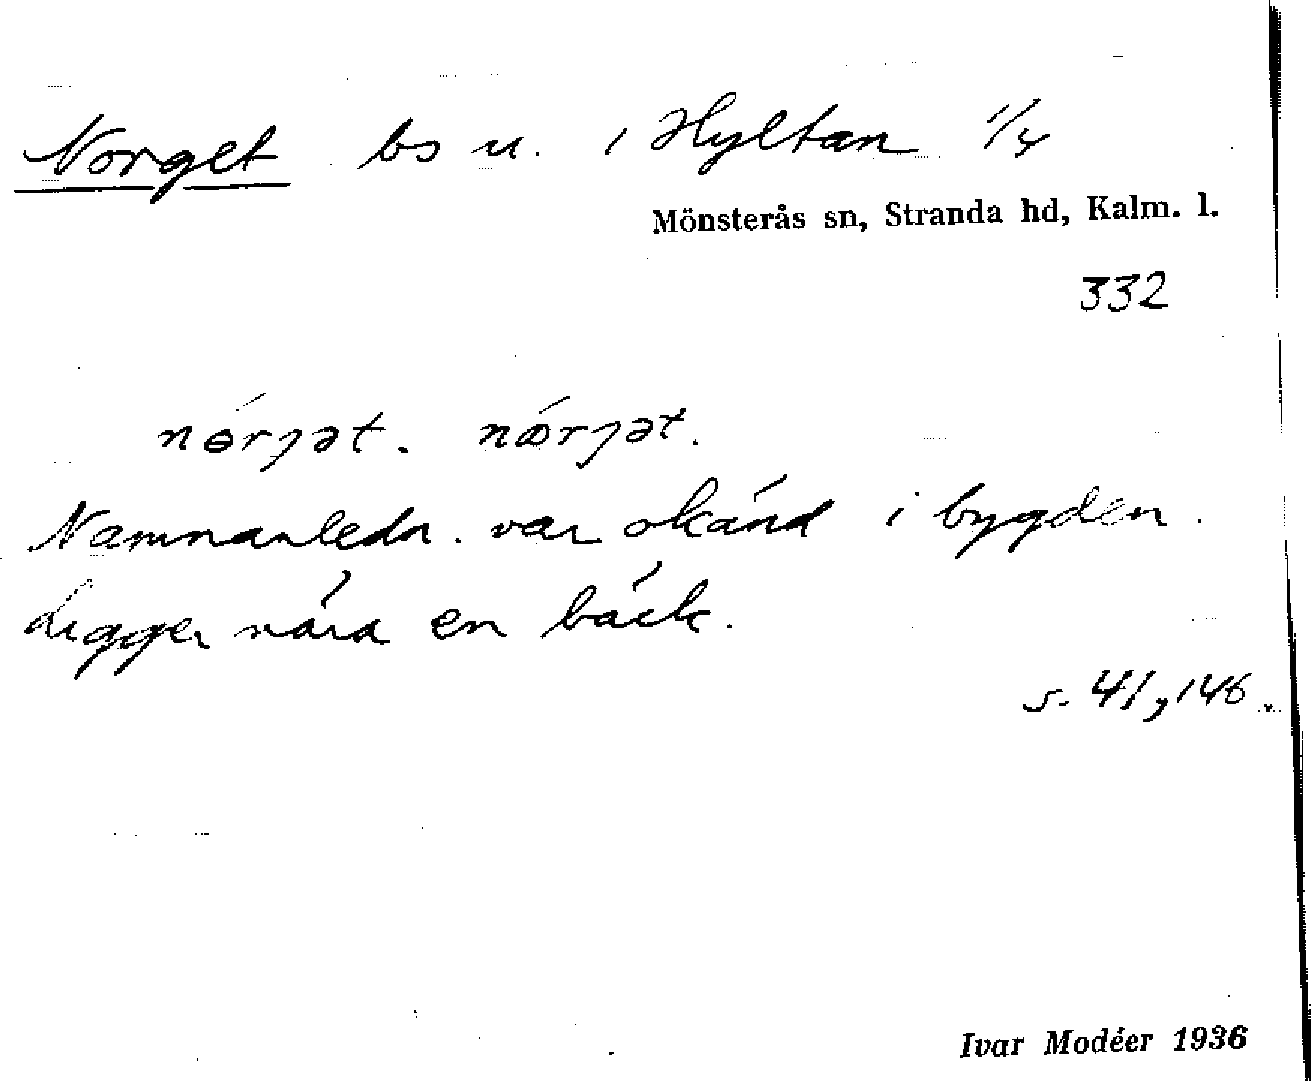 Norget bs u. i Hyltan 1/4
Mönsterås sn, Stranda hd, Kalm. l.
332
nɵ́rȷət. nǿrȷət.
Namnanledn. var okänd i bygden.
Ligger nära en bäck.
s. 41, 146
Ivar Modéer 1936